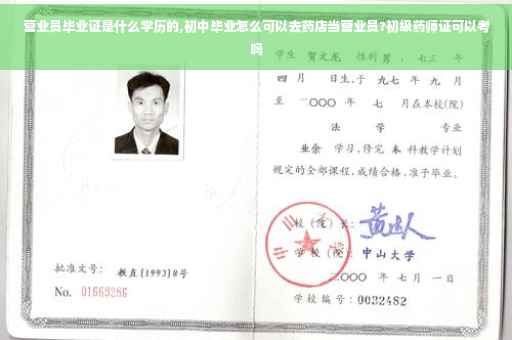 营业员毕业证是什么学历的,初中毕业怎么可以去药店当营业员?初级药师证可以考
吗
学生 贺文龙 性别 男 , 七三 年
四 月 日生,于 九七 年 九 月
至 二〇〇〇 年 七 月在本校(院)
法 学 专业
业余 学习,修完 本 科教学计划
规定的全部课程,成绩合格,准予毕业。
校 (院) 长:
学 校 (院): 中山大学
二〇〇〇 年 七 月 一 日
学校编号: 0032482
批准文号: 教直[1993]8号
No. 01669286